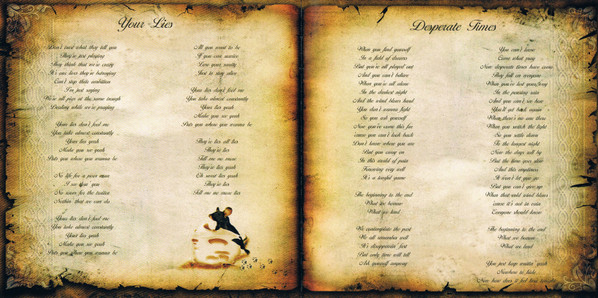 Your Lies
Don't trust what they tell you
They're just playing
They think that we're crazy
It's our lives they're betraying
Can't stop their ambition
I'm just saying
We're all pigs at the same trough
Dealing while we're praying
Your lies don't fool me
You talk almost constantly
Your lies
Make you so weak
Puts you where you wanna be
No life for a poor man
I am
No tears for the traitor
Nothin' that we can do
Your lies don't fool me
You take almost constantly
Your lies
Make you so weak
Puts you where you wanna be
All you want to be
If you can survive
Lose your sanity
Just to stay alive
Your lies don't fool me
You take almost constantly
Your lies
Make you so weak
Puts you where you wanna be
They're lies all lies
Tell me no more
They're lies
Go west lies
They're lies
Tell me no more
Desperate Times
When you find yourself
In a field of dreams
But you're all played out
And you can't believe
When you're all alone
In the darkest night
And the wind blows hard
You don't wanna fight
So you ask yourself
Now you're across this far
cause you can't look back
Don't know where you are
But you carry on
In this world of pain
Knowing very well
It's a tough game
The beginning to the end
What the
What we
We contemplate the past
We all remember well
It's disappearin' fast
But only time will tell
Ask yourself anyway
You can't know
Come what may
Now desperate times have come
They fall on everyone
When you're lost
In the pouring rain
And you can't see how
You'll get
When there's no one there
When you switch the light
So you settle down
In the longest night
Now the days will by
But the time goes slow
And this emptiness
It won't let you go
But you can't give up
When that cold wind blows
cause it's not in vain
Everyone should know
The beginning to the end
What the
What we
You just keep waitin'
Nowhere to hide
Now how does it feel